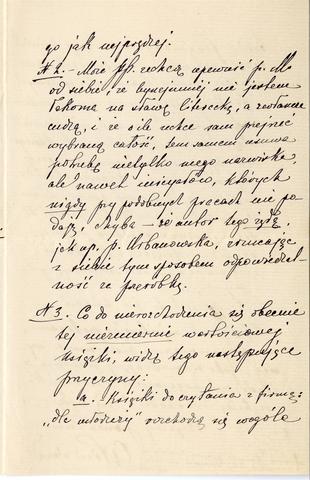 go jak najprędzej.
№ 2. – Może pp. zechcą upewnić p. M.
od siebie, że bynajmniej nie jestem
łakoma na sławę literacką, a zwłaszcza
cudzą, i że o ile zechce sam przejrzeć
wybraną całość, tem samem usuwa
potrzebę nietylko mego nazwiska,
ale nawet inicyałów, których
nigdy przy podobnych pracach nie po-
daję, chyba – że autor tego żąda,
jak np. p. Urbanowska, zrzucając
z siebie tym sposobem odpowiedzial-
ność za przeróbkę.
№ 3. Co do nierozchodzenia się obecnie
tej niezmiernie wartościowej
książki, widzę tego następujące
przyczyny:
a. Książki do czytania z firmą:
„dla młodzieży" rozchodzą się wogóle